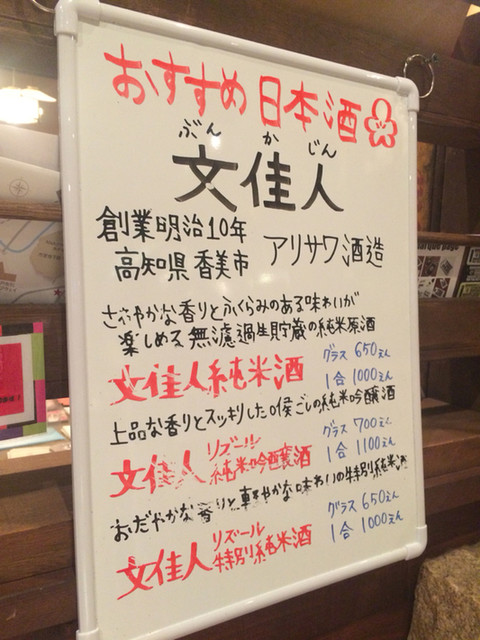 おすすめ日本酒
ぶん か じん
文佳人
創業明治10年
高知県香美市 アリサワ酒造
さわやかな香りとふくらみのある味わいが
楽しめる無濾過生貯蔵の純米原酒
文佳人純米酒 グラス650えん
1合1000えん
上品な香りとスッキリした喉ごしの純米吟醸酒
文佳人 リズール 純米吟醸酒 グラス700えん
1合1100えん
おだやかな香りと軽やかな味わいの特別純米酒
文佳人 リズール 特別純米酒 グラス650えん
1合1000えん